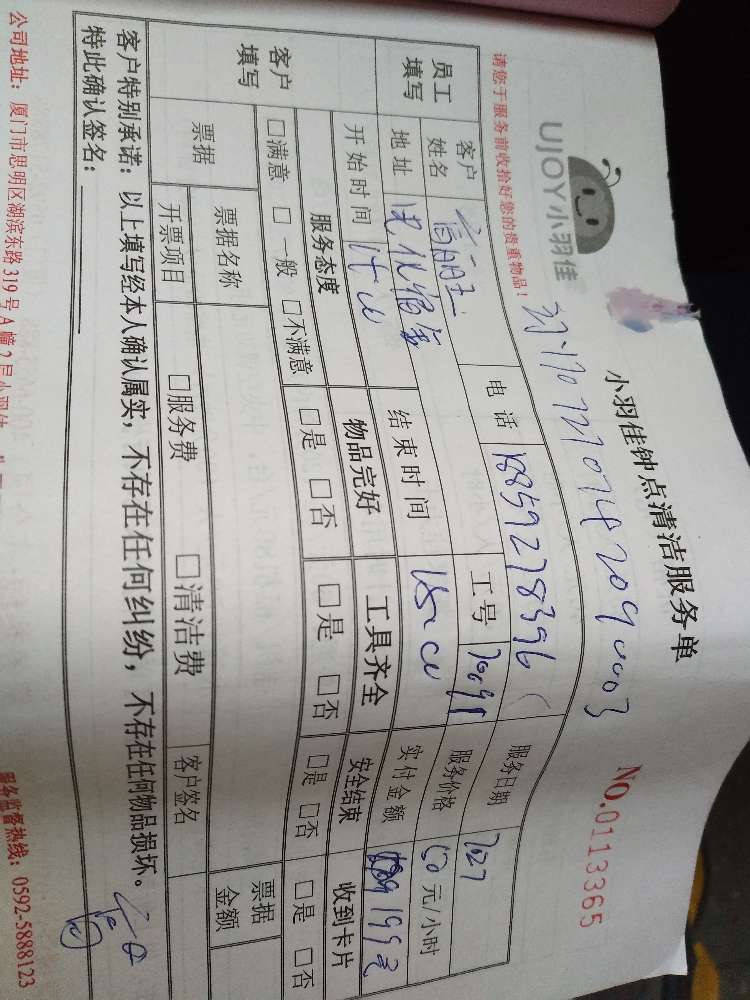 UJOY小羽佳
小羽佳钟点清洁服务单
请您于服务前收拾好您的贵重物品！
NO.0113365
员工填写
客户姓名
电话 18859278396
服务日期 7.27
地址
工号
服务价格 50元/小时
开始时间
结束时间
实付金额
客户填写
服务态度 物品完好 工具齐全 安全结束 收到卡片
□满意 □一般 □不满意 □是 □否 □是 □否 □是 □否 □是 □否
票据 票据名称 票据金额
开票项目 □服务费 □清洁费 客户签名
客户特别承诺：以上填写经本人确认属实，不存在任何纠纷，不存在任何物品损坏。
特此确认签名：
公司地址：厦门市思明区湖滨东路319号A幢2层小羽佳
服务监督热线：0592-5888123